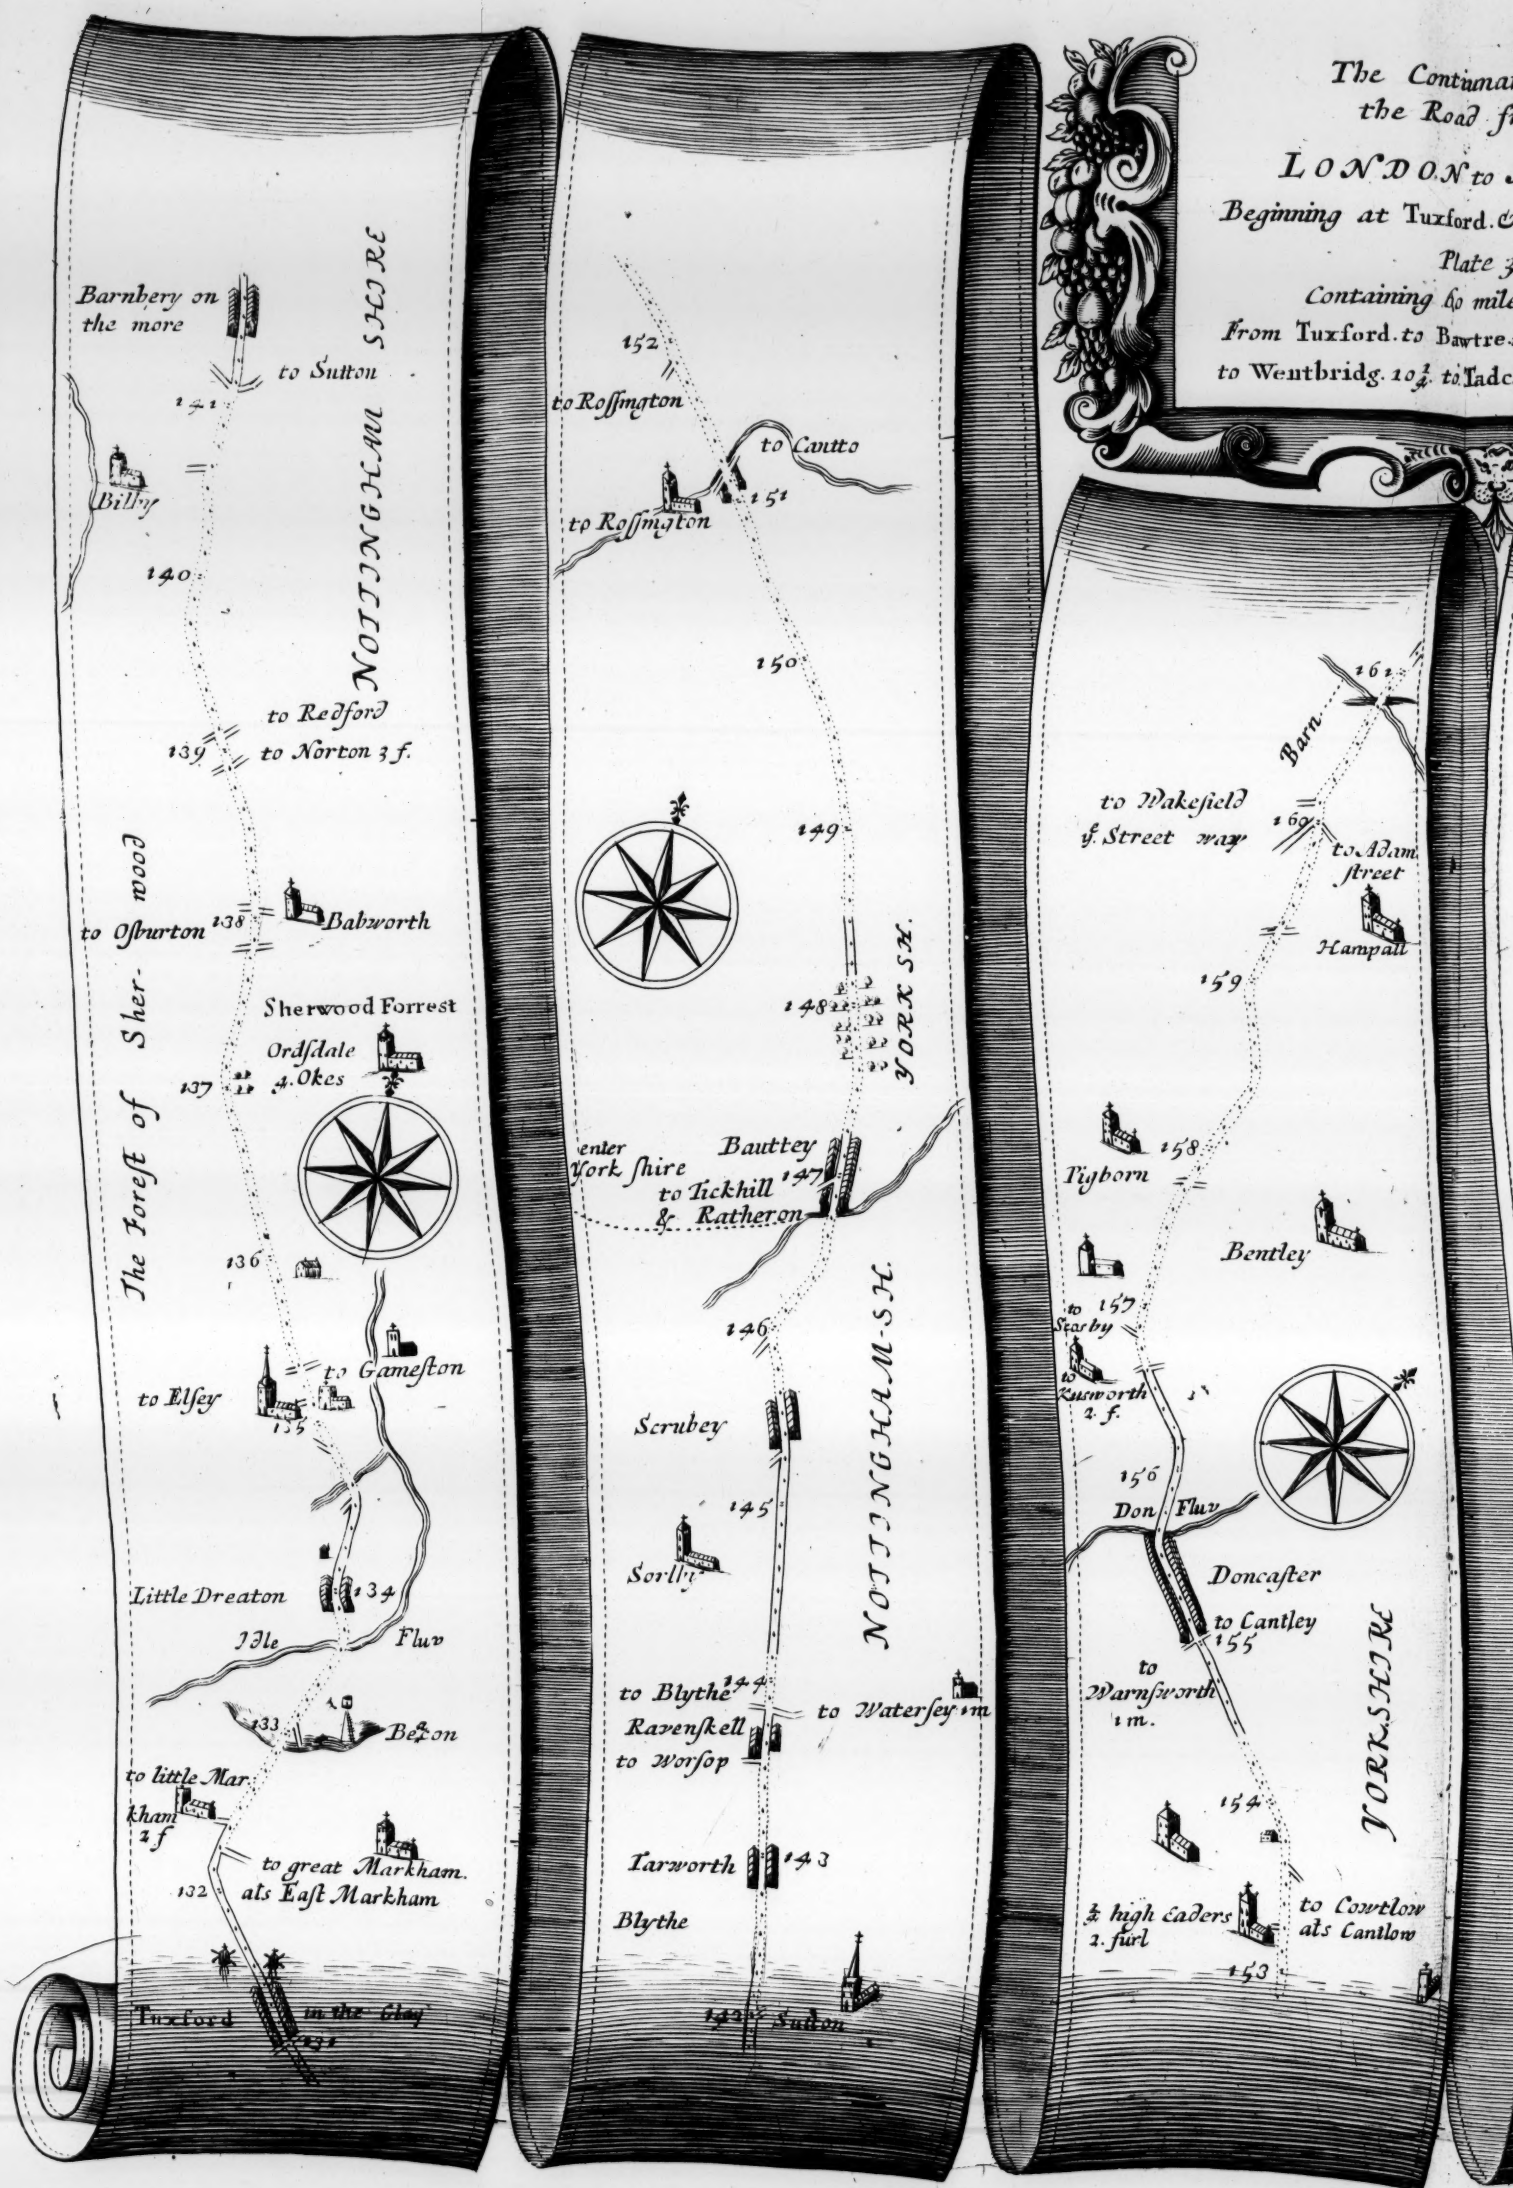 The
the Road
LONDON to
Beginning at Tuxford. &
Plate 3
Containing 60 mile
From Tuxford. to Bawtre
to Wentbridg. 10¾ to Tadc
Barnbery on
the more
to Sutton
141
NOTTINGHAM SHIRE
Bilby
140
to Redford
139
to Norton 3 f.
The Forest of Sher-wood
to Osburton
138
Babworth
Sherwood Forrest
Ordsdale
4. Okes
137
136
to Gameston
to Elsey
135
Little Dreaton
134
Idle Fluv
133
to little Mar
kham
2 f
to great Markham.
als East Markham
132
Tuxford in the Clay
131
152
to Rossington
to Cantto
151
to Rossington
150
149
148
YORK SH.
enter
York shire
Bauttey
147
to Tickhill
& Ratheron
146
Scrubey
NOTTINGHAM-SH.
145
Sorlby
144
to Blythe
to Watersey 1m
Ravenskell
to Worsop
Tarworth
143
Blythe
142
Sutton
161
Barn
to Wakefield
160
yᵉ Street way
to Adam
street
Hampall
159
158
Pigborn
Bentley
157
to
to
Kusworth
2. f.
156
Don Fluv
Doncaster
to Cantley
155
to
Warnsworth
1 m.
YORKSHIRE
154
high Eaders
2. furl
to Cowtlow
als Cantlow
153